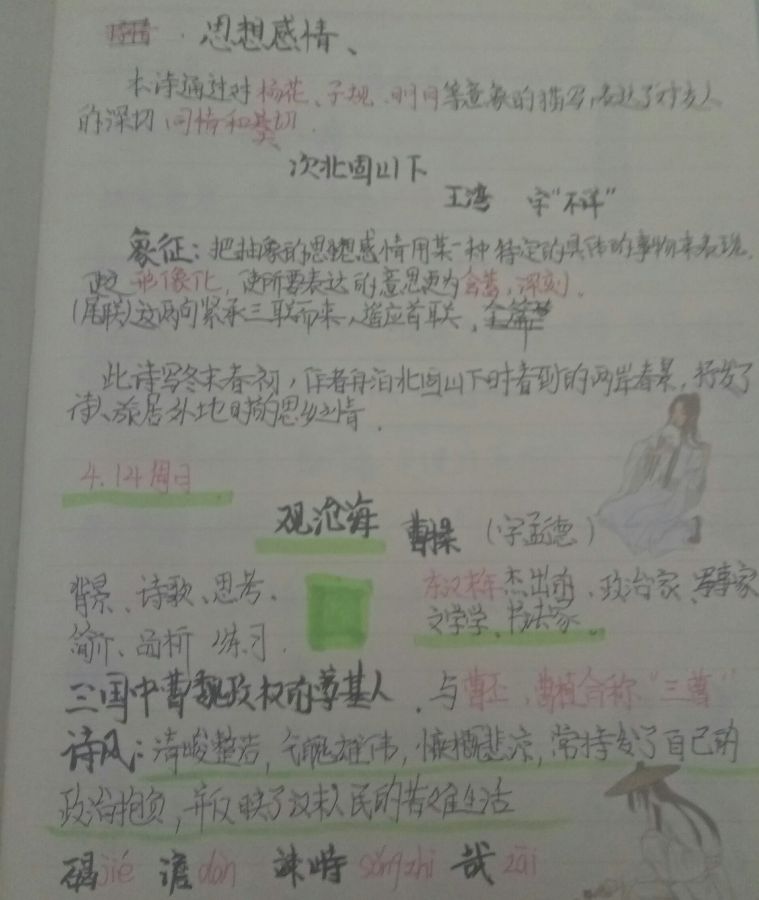 诗情.思想感情、
本诗通过对杨花、子规、明月等意象的描写,表达了对友人
的深切同情和关切.
次北固山下
王湾 字“不详”
象征:把抽象的思想感情用某一种特定的具体的事物来表现,
使之形像化,使所要表达的意思更为含蓄,深刻.
(尾联)这两句紧承三联而来,遥应首联,全篇
此诗写冬末春初,作者舟泊北固山下时看到的两岸春景,抒发了
诗人旅居外地时的思乡之情.
4.14周日
观沧海 曹操 (字孟德)
背景、诗歌、思考、 东汉末年杰出的、政治家、军事家
简介、品析 练习. 文学学、书法家。
三国中曹魏政权的尊基人.与曹丕,曹植合称“三曹”
诗风:清峻整洁,气魄雄伟,慷慨悲凉,常抒发了自己的
政治抱负,并反映了汉末人民的苦难生活
碣jié 澹dàn 竦峙sǒngzhì 哉zāi